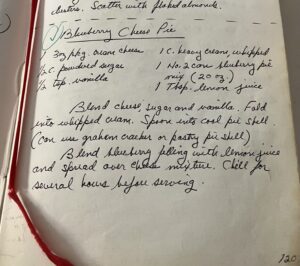 clusters. Scatter with flaked almonds.
Blueberry Cheese Pie
1 3 oz pkg. cream cheese 1 C. heavy cream, whipped
1/2 C powdered sugar 1 No. 2 can blueberry pie
1/2 tsp. vanilla mix (20 oz.)
1 Tbsp. lemon juice
Blend cheese, sugar and vanilla. Fold
into whipped cream. Spoon into cool pie shell.
(Can use graham cracker or pastry pie shell)
Blend blueberry filling with lemon juice
and spread over cheese mixture. Chill for
several hours before serving.
120